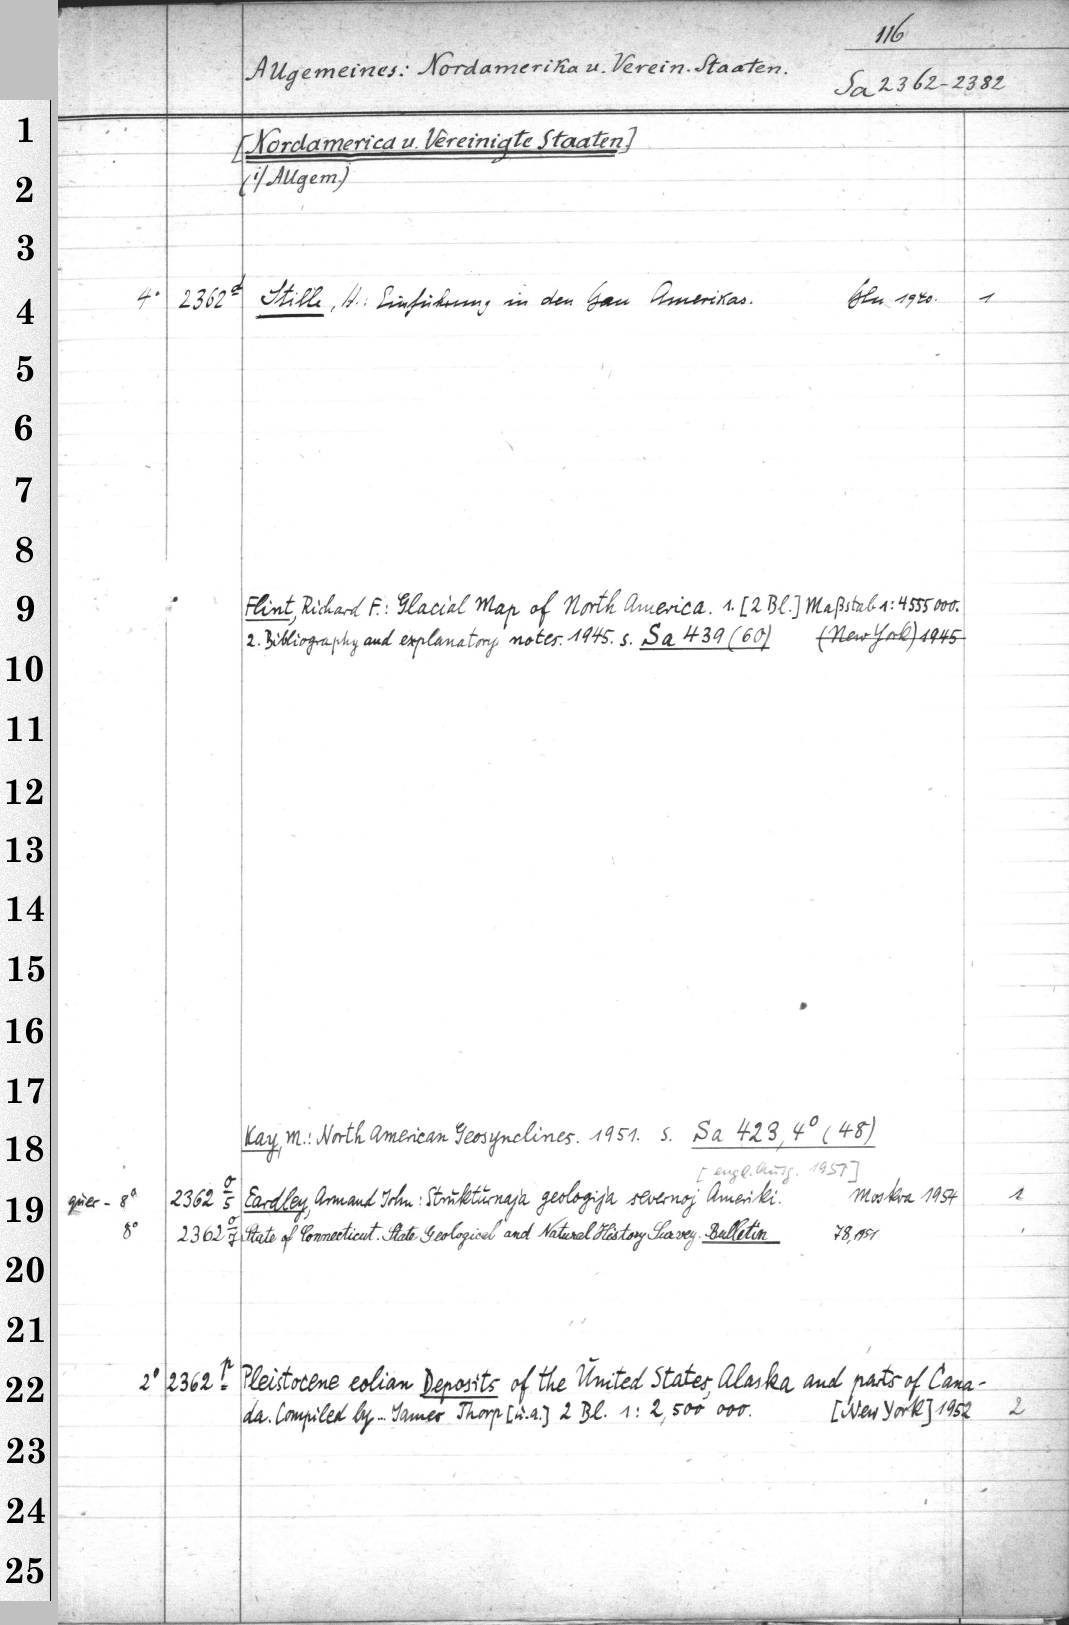 116
Allgemeines: Nordamerika u. Verein. Staaten.
Sa 2362-2382
1
[Nordamerica u. Vereinigte Staaten]
2
(i/ Allgem.)
3
4
4° 2362 d Stille, H.: Einführung in den Bau Amerikas. Bln 1940. 1
5
6
7
8
9
Flint, Richard F.: Glacial Map of North America. 1. [2 Bl.] Maßstab 1:4555000.
2. Bibliography and explanatory notes. 1945. s. Sa 439 (60) (New York) 1945
10
11
12
13
14
15
16
17
18
Kay, M.: North American Geosynclines. 1951. s. Sa 423, 4° (48)
[engl. Ausg. 1951]
19
quer - 8° 2362 o/5 Eardley, Armand John: Strukturnaja geologija severnoj Ameriki. Moskva 1954 1
8° 2362 o/7 State of Connecticut. State Geological and Natural History Survey. Bulletin 78, 1951
20
21
22
2° 2362 p Pleistocene eolian Deposits of the United States, Alaska and parts of Cana-
da. Compiled by... James Thorp [u.a.] 2 Bl. 1: 2,500 000. [New York] 1952 2
23
24
25